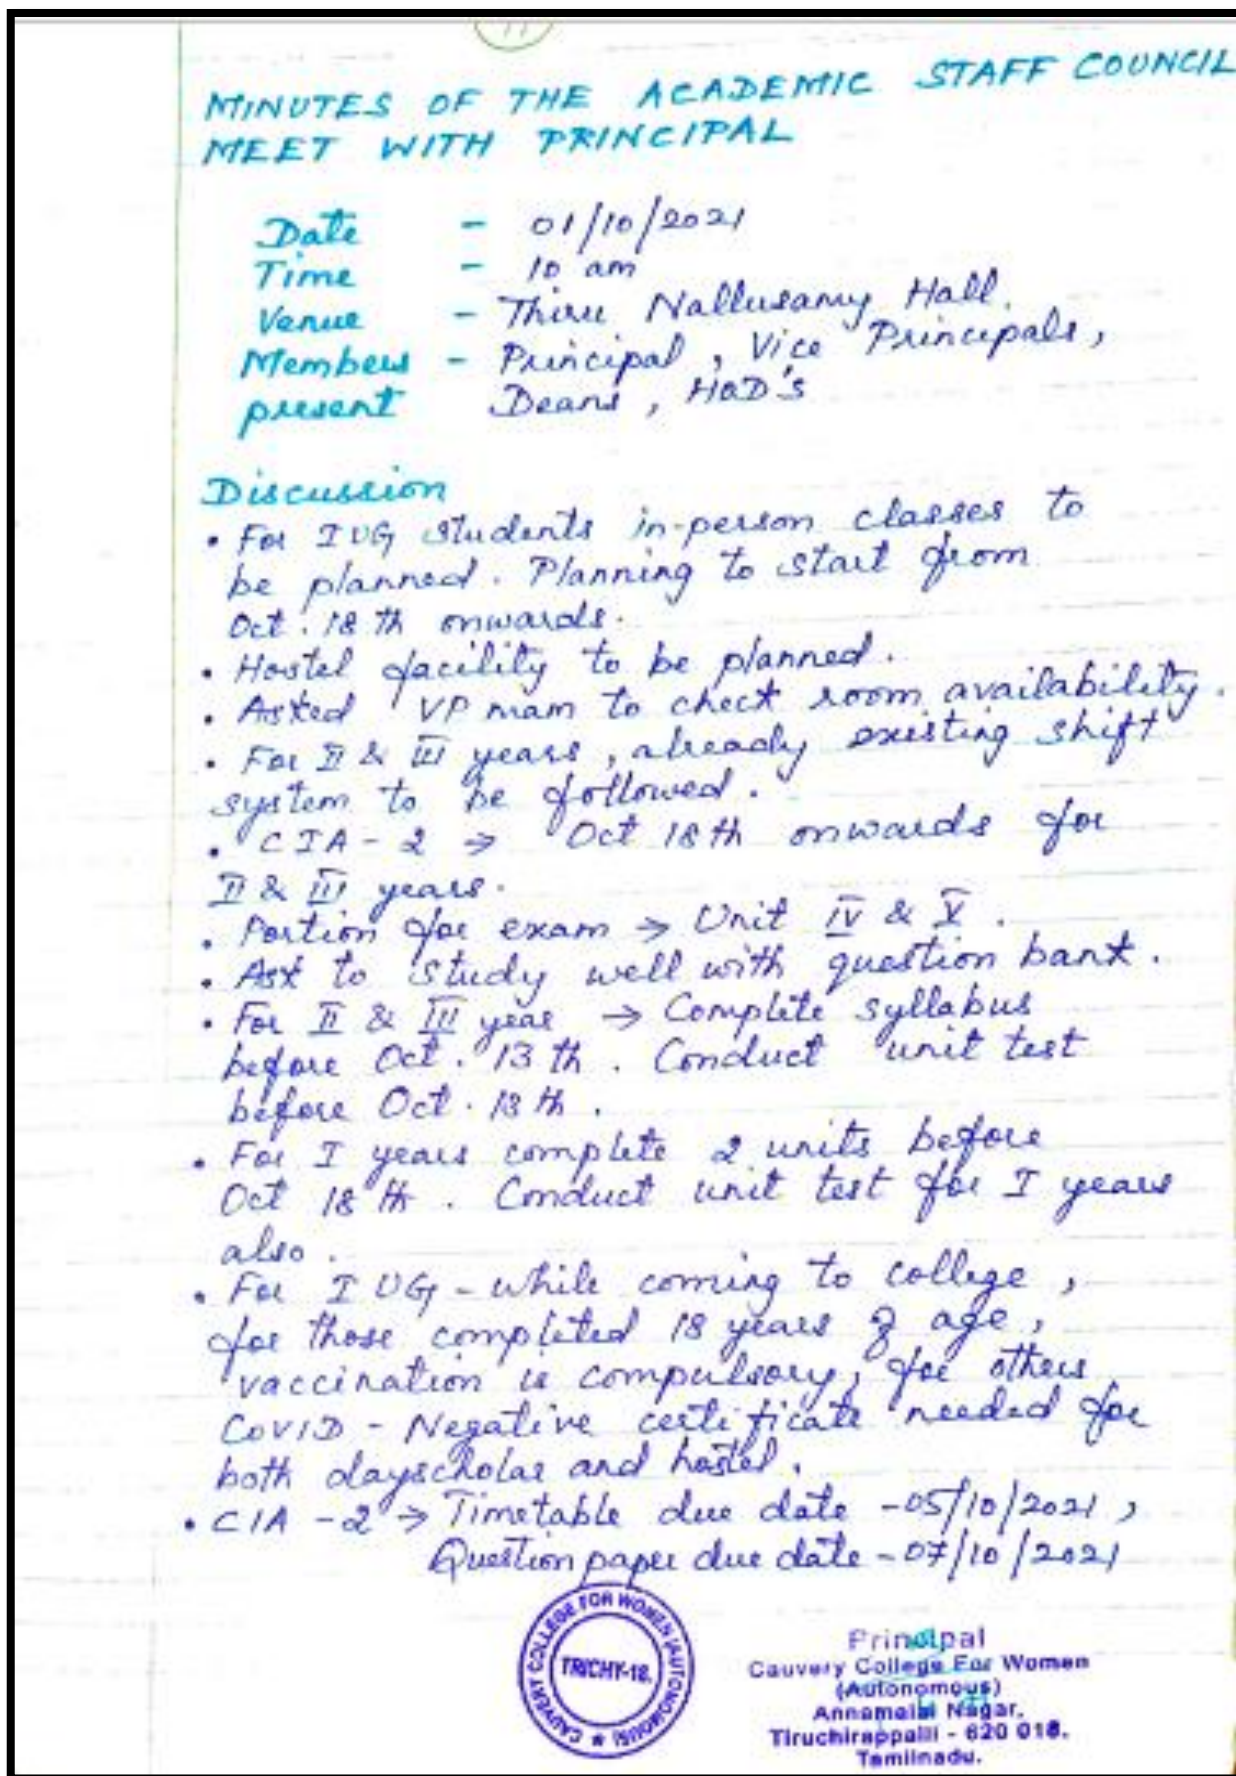 11
MINUTES OF THE ACADEMIC STAFF COUNCIL
MEET WITH PRINCIPAL
Date - 01/10/2021
Time - 10 am
Venue - Thiru Nallusamy Hall.
Members - Principal, Vice Principals,
present Deans, HOD's
Discussion
• For I UG students in-person classes to
be planned. Planning to start from
Oct. 18th onwards.
• Hostel facility to be planned.
• Asked VP mam to check room availability.
• For II & III years, already existing shift
system to be followed.
• CIA-2 → Oct 18th onwards for
II & III years.
• Portion for exam → Unit IV & V.
• Ask to study well with question bank.
• For II & III year → Complete syllabus
before Oct. 13th. Conduct unit test
before Oct. 13th.
• For I years complete 2 units before
Oct 18th. Conduct unit test for I years
also.
• For I UG - while coming to college,
for those completed 18 years of age,
vaccination is compulsory, for others
COVID - Negative certificate needed for
both dayscholar and hostel.
• CIA-2 → Timetable due date - 05/10/2021,
Question paper due date - 07/10/2021
CAUVERY COLLEGE FOR WOMEN (AUTONOMOUS)
TRICHY-18.
Principal
Cauvery College For Women
(Autonomous)
Annamalai Nagar,
Tiruchirappalli - 620 018.
Tamilnadu.